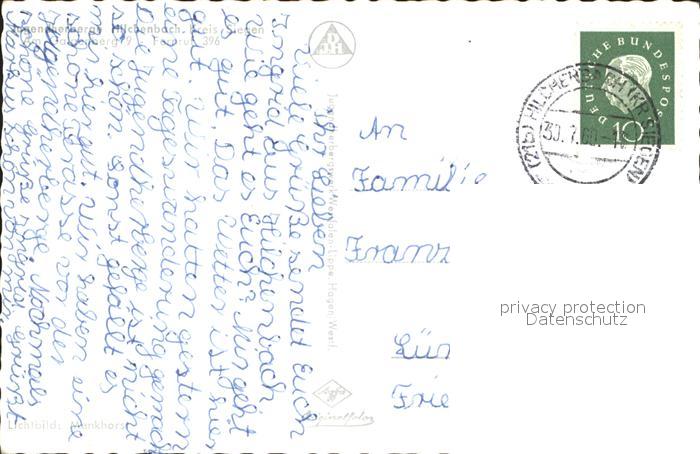 Jugendherberge Hilchenbach, Kreis Siegen
Fernruf 396
Ihr Lieben
Viele Grüße sendet Euch
Ingrid aus Hilchenbach
wie geht es Euch? Mir geht
es gut. Das Wetter ist hier
gut. Wir hatten gestern
eine Tageswanderung gemacht
Die Jugendherberge ist nicht
so schön. Sonst gefällt es
mir hier gut. Wir haben eine
schöne Terasse vor der
Jugendherberge. Nochmals
schöne Grüße
Jugendherbergswerk Westfalen-Lippe Hagen/Westf.
DJH
DEUTSCHE BUNDESPOST
10
(21b) HILCHENBACH (KR SIEGEN)
30.7.60.-1
An
Familie
Franz
Lün
Frie
privacy protection
Datenschutz
Agfa
Lichtbild: Menkhorst